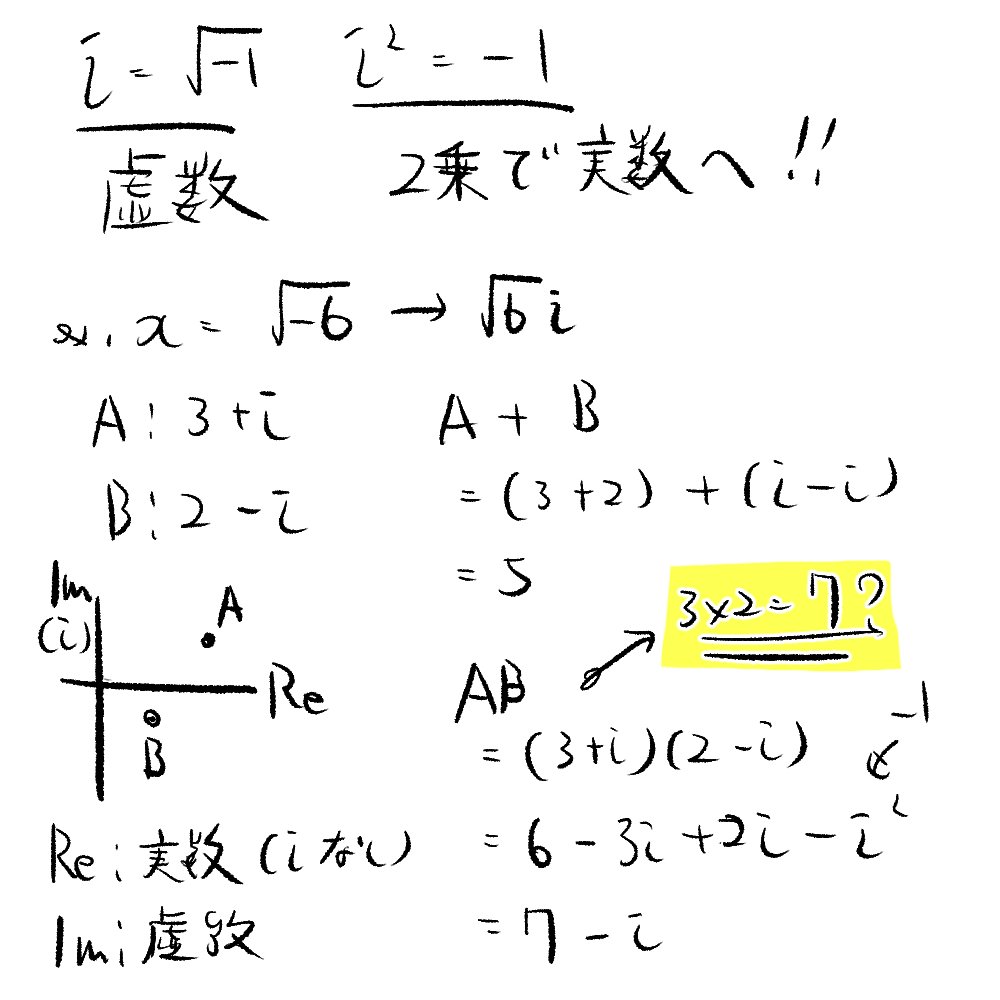 i = √-1
i² = -1
虚数
2乗で実数へ!!
ex. x = √-6 → √6 i
A: 3+i
B: 2-i
A + B
= (3+2) + (i-i)
= 5
Im
(i)
A
Re
B
Re: 実数 (iなし)
Im: 虚数
AB
3×2=7?
= (3+i)(2-i)
-1
= 6-3i+2i-i²
= 7-i